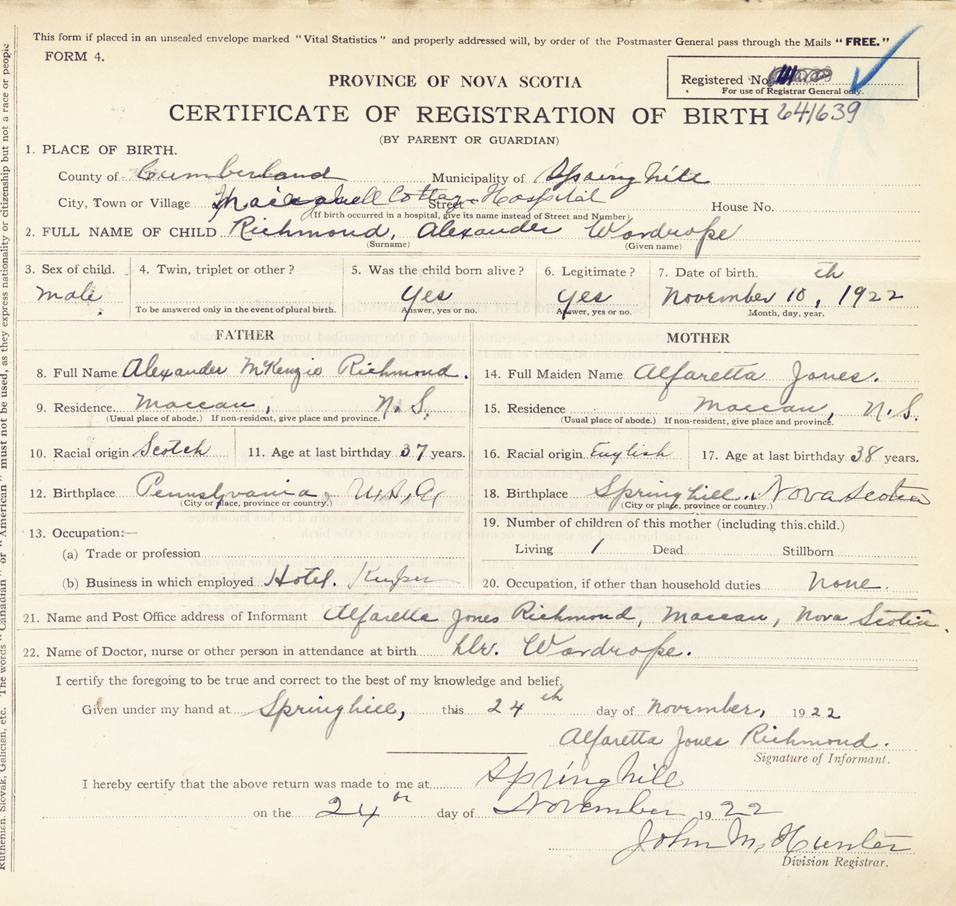 This form if placed in an unsealed envelope marked "Vital Statistics" and properly addressed will, by order of the Postmaster General pass through the Mails "FREE."
FORM 4.
Registered No.
For use of Registrar General only.
PROVINCE OF NOVA SCOTIA
CERTIFICATE OF REGISTRATION OF BIRTH 641639
(BY PARENT OR GUARDIAN)
1. PLACE OF BIRTH.
County of Cumberland Municipality of Springhill
City, Town or Village Cottage Hospital Street House No.
(If birth occurred in a hospital, give its name instead of Street and Number)
2. FULL NAME OF CHILD Richmond, Alexander Wardrope
(Surname) (Given name)
3. Sex of child. 4. Twin, triplet or other? 5. Was the child born alive? 6. Legitimate? 7. Date of birth.
male Yes Yes November 10th, 1922
To be answered only in the event of plural birth. Answer, yes or no. Answer, yes or no. Month, day, year.
FATHER
8. Full Name Alexander McKenzie Richmond.
9. Residence Maccan, N.S.
(Usual place of abode.) If non-resident, give place and province.
10. Racial origin Scotch 11. Age at last birthday 37 years.
12. Birthplace Pennsylvania, U.S.A.
(City or place, province or country.)
13. Occupation:—
(a) Trade or profession
(b) Business in which employed Hotel. Keeper
MOTHER
14. Full Maiden Name Alfaretta Jones.
15. Residence Maccan, N.S.
(Usual place of abode.) If non-resident, give place and province.
16. Racial origin English 17. Age at last birthday 38 years.
18. Birthplace Springhill, Nova Scotia
(City or place, province or country.)
19. Number of children of this mother (including this child.)
Living 1 Dead Stillborn
20. Occupation, if other than household duties None.
21. Name and Post Office address of Informant Alfaretta Jones Richmond, Maccan, Nova Scotia.
22. Name of Doctor, nurse or other person in attendance at birth Dr. Wardrope.
I certify the foregoing to be true and correct to the best of my knowledge and belief.
Given under my hand at Springhill, this 24th day of November, 1922
Alfaretta Jones Richmond.
Signature of Informant.
I hereby certify that the above return was made to me at Springhill
on the 24th day of November 1922
John M. Hunter
Division Registrar.
Ruthenian, Slovak, Galician, etc. The words "Canadian" or "American" must not be used, as they express nationality or citizenship but not a race or people